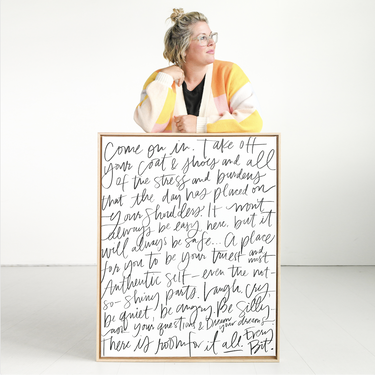 Come on in. Take off
your coat & shoes and all
of the stress and burdens
that the day has placed on
your shoulders. It won't
always be easy here, but it
will always be safe... A place
for you to be your truest and most
Authentic self - even the not-
so- shiny parts. Laugh, cry,
be quiet, be angry. Be Silly.
and your questions & Dream your dreams -
there is room for it all. Every
Bit.